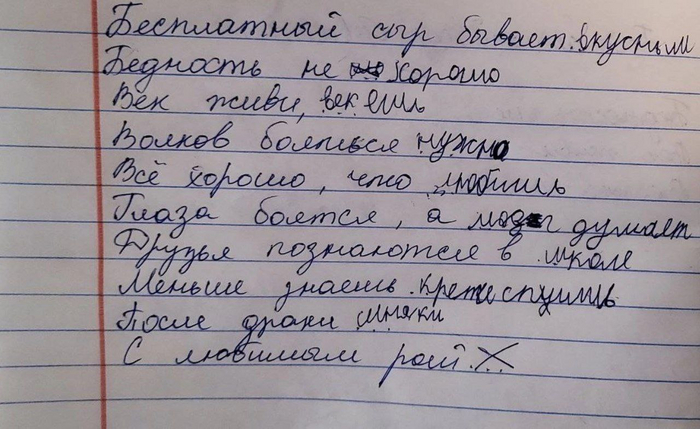 Бесплатный сыр бывает вкусным
Бедность не хорошо
Век живи, век ешь
Волков бояться нужно
Всё хорошо, что любишь
Глаза боятся, а мозг думает
Друзья познаются в школе
Меньше знаешь крепче спишь
После драки синяки
С любимым рай